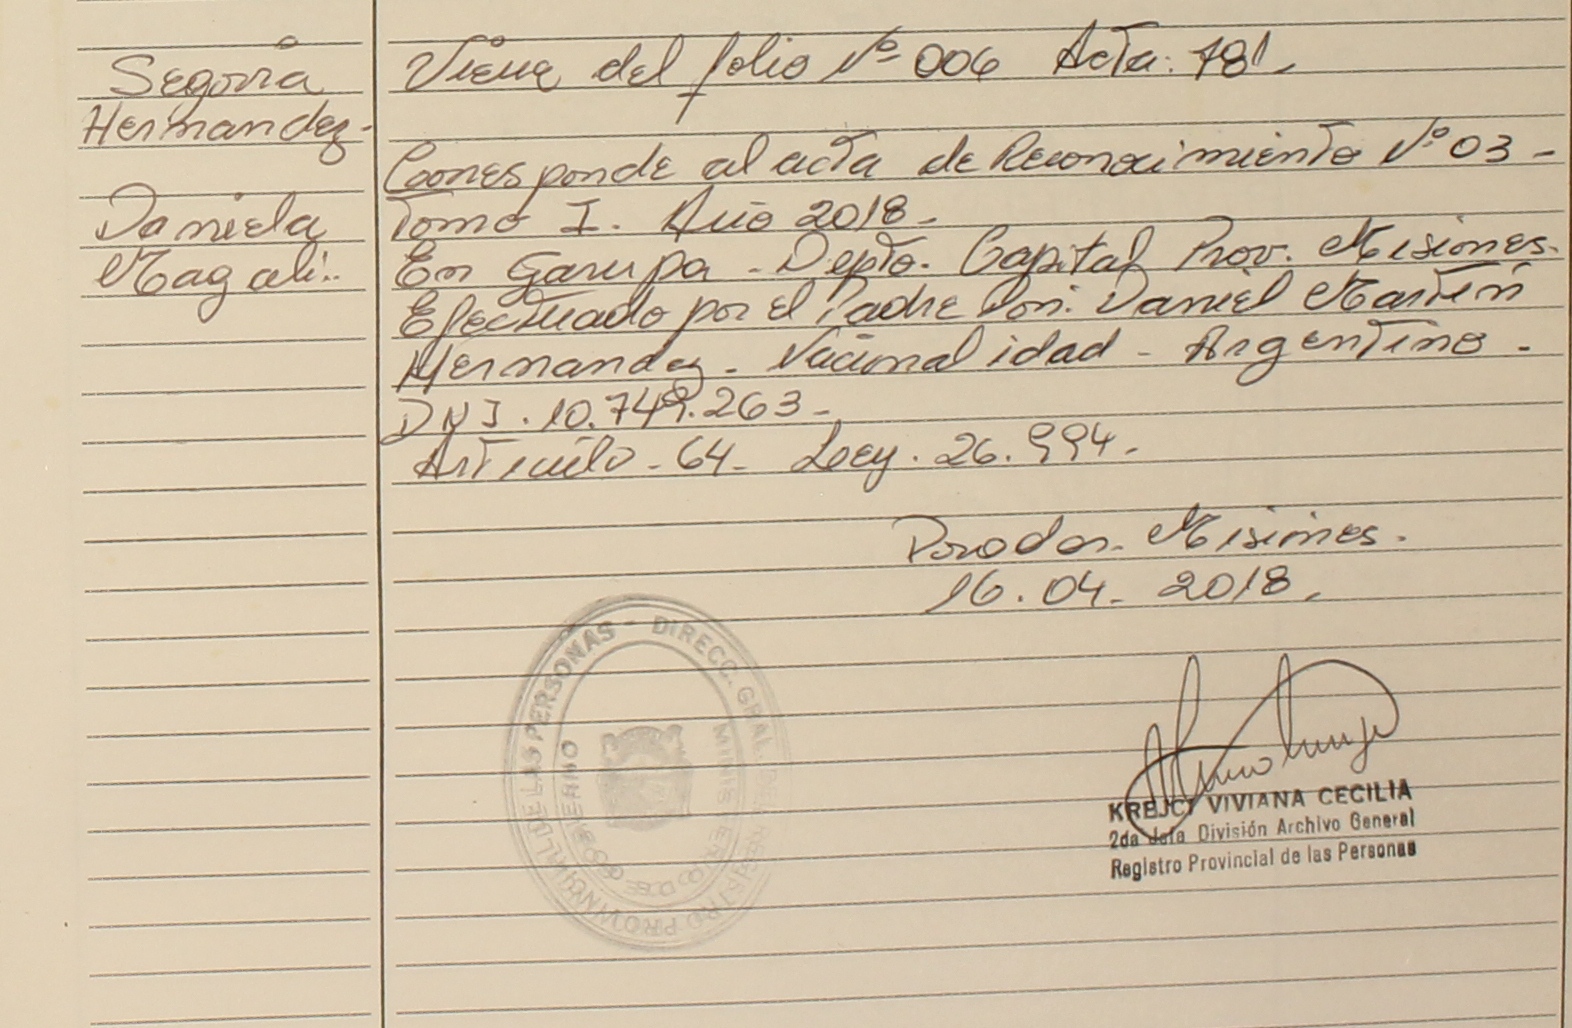 Segovia
Hernandez-
Daniela
Magali..
Viene del folio Nº 006 Acta: 781.
Corresponde al acta de Reconocimiento Nº 03 -
Tomo I. Año 2018.-
En Garupa - Depto. Capital Prov. Misiones.
Efectuado por el Padre Don: Daniel Martín
Hernandez - Nacionalidad - Argentino -
DNI. 10.749.263 -
Artículo - 64 - Ley. 26.994.-
Posadas - Misiones.
16.04.2018.
DIRECC. GRAL. DEL REGISTRO PROVINCIAL DE LAS PERSONAS -
MINISTERIO DE GOBIERNO
KREJCI VIVIANA CECILIA
2da Jefa División Archivo General
Registro Provincial de las Personas